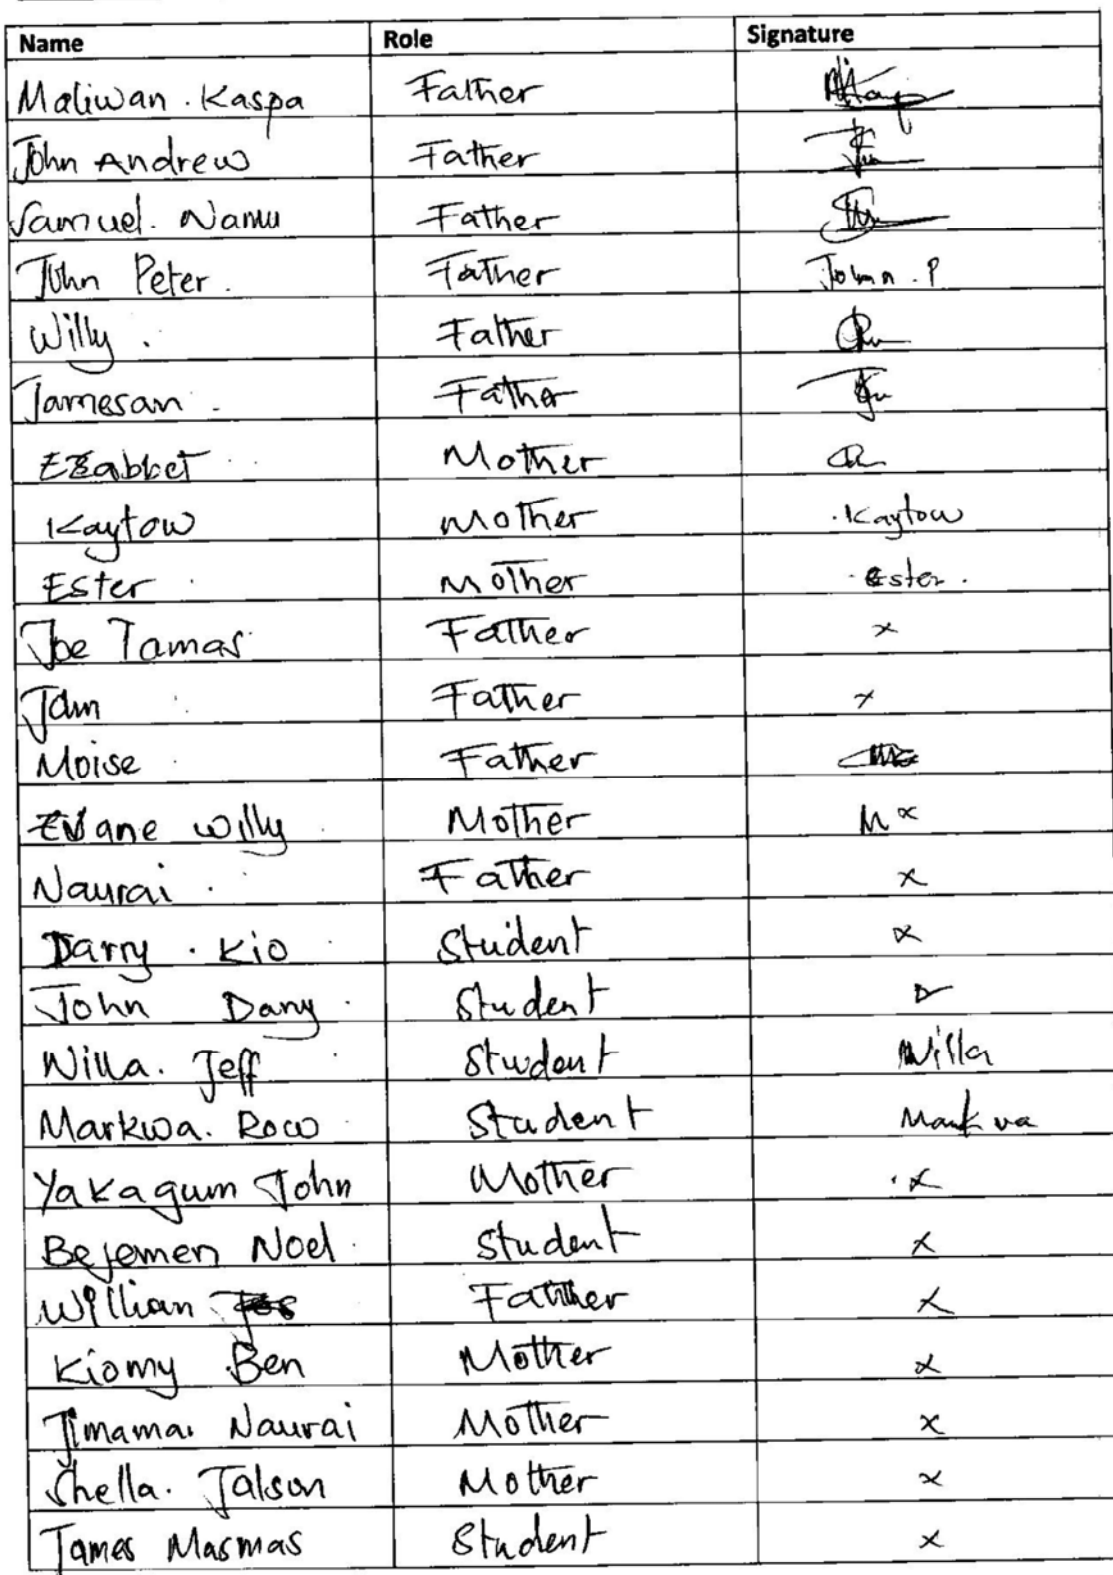 Name Role Signature
Maliwan . Kaspa Father
John Andrew Father
Samuel. Namu Father
John Peter. Father John . P
Willy . Father
Jamesan . Father
Mother
Kaytow Mother .Kaytow
Ester . Mother . Ester .
Joe Tamas . Father x
John Father x
Moise Father
Willy Mother M x
Naurai . Father x
Darry . Kio Student x
John Dany . Student D
Willa. Jeff Student Willa
Markwa. Roco Student Markwa
Yakagum John Mother .x
Bejemen Noel . Student x
Willian Father x
Kiomy Ben Mother x
Jimamai Naurai Mother x
Shella. Jalson Mother x
James Masmas Student x